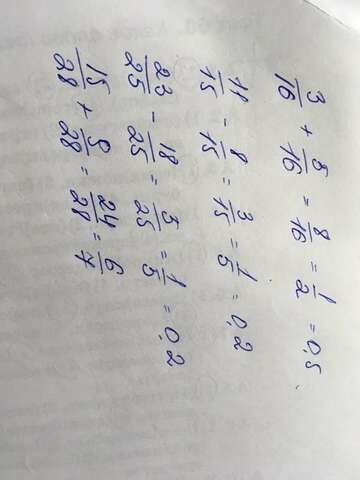 3/16 + 5/16 = 8/16 = 1/2 = 0,5
11/15 - 8/15 = 3/15 = 1/5 = 0,2
23/25 - 18/25 = 5/25 = 1/5 = 0,2
15/28 + 9/28 = 24/28 = 6/7